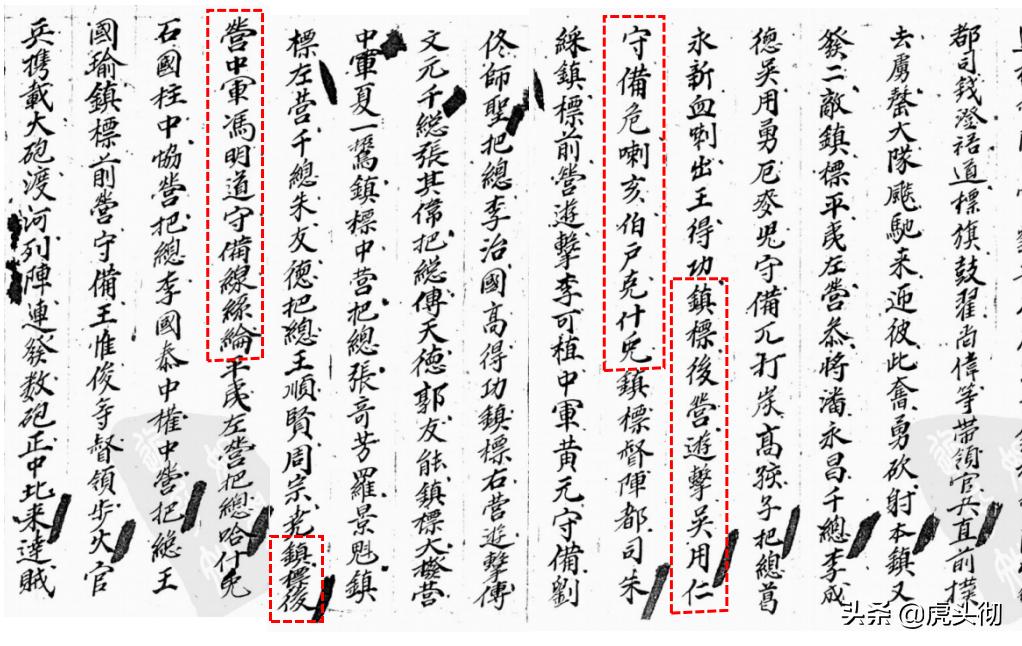 都司錢澄祜道標旗鼓翟尚偉等帶領官兵直前撲
去虜營大隊飈馳来迎彼此奮勇砍射本鎮又
發二敵鎮標平虜左營叅將潘永昌千總李成
德吳用勇厄麥児守備兀打炭高猴子把總葛
永新血喇出王得功鎮標後營遊擊吳用仁
守備危喇亥伯户克什兔鎮標督陣都司朱
綵鎮標前營遊擊李可植中軍黄元守備劉
佟師聖把總李治國高得功鎮標右營遊擊傳
文元千総張其偉把総傅天德郭友能鎮標大營
中軍夏一鶚鎮標中营把總張奇芳羅景魁鎮
標左营千總朱友德把總王順賢周宗堯鎮標後
營中軍馮明道守備線絲綸平虜左營把總哈什兔
石國柱中協營把總李國泰中權中營把總王
國瑜鎮標前營守備王惟俊等督領步火官
兵携載大砲渡河列陣連發数砲正中北来達賊
头条 @虎头彻